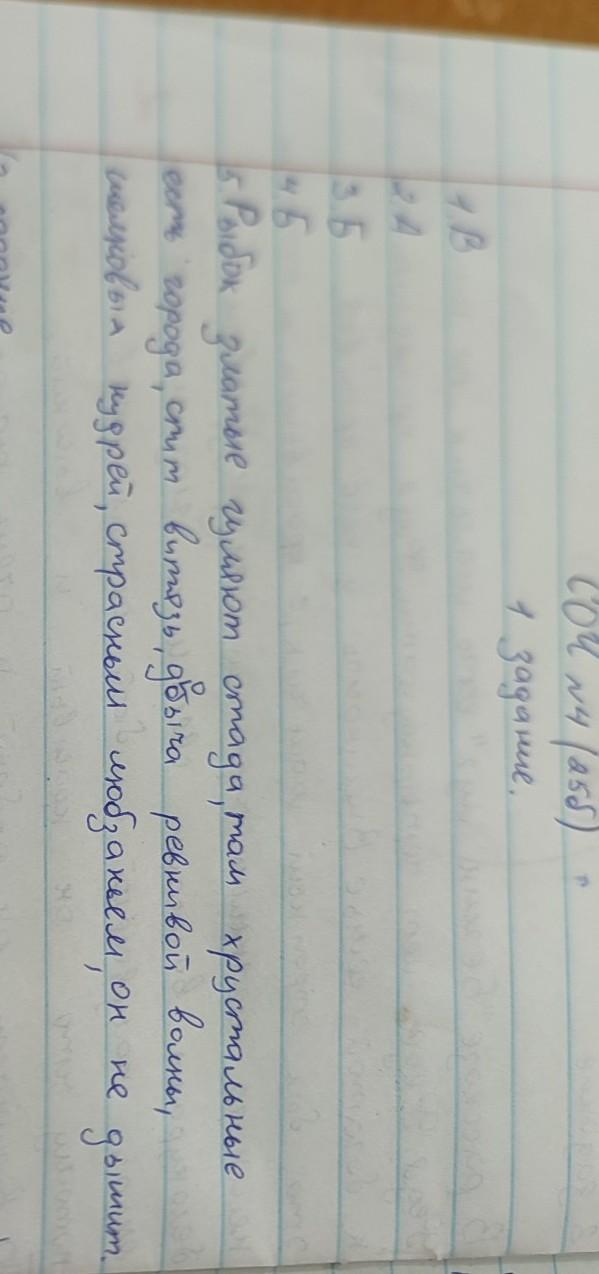 СОЧ №4 (25б)
1 задание.
1. В
2 А
3. Б
4. Б
5. Рыбок златые гуляют стада, там хрустальные
есть города, спит витязь, добыча ревнивой волны,
шелковых кудрей, страсным любзаньем, он не дышит.